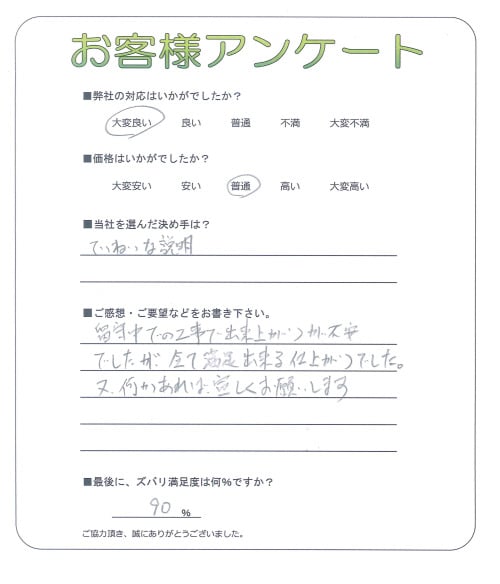 お客様アンケート
■弊社の対応はいかがでしたか？
大変良い 良い 普通 不満 大変不満
■価格はいかがでしたか？
大変安い 安い 普通 高い 大変高い
■当社を選んだ決め手は？
ていねいな説明
■ご感想・ご要望などをお書き下さい。
留守中での工事で出来上がりが不安
でしたが、全て満足出来る仕上がりでした。
又、何かあれば、宜しくお願いします
■最後に、ズバリ満足度は何%ですか？
90 %
ご協力頂き、誠にありがとうございました。